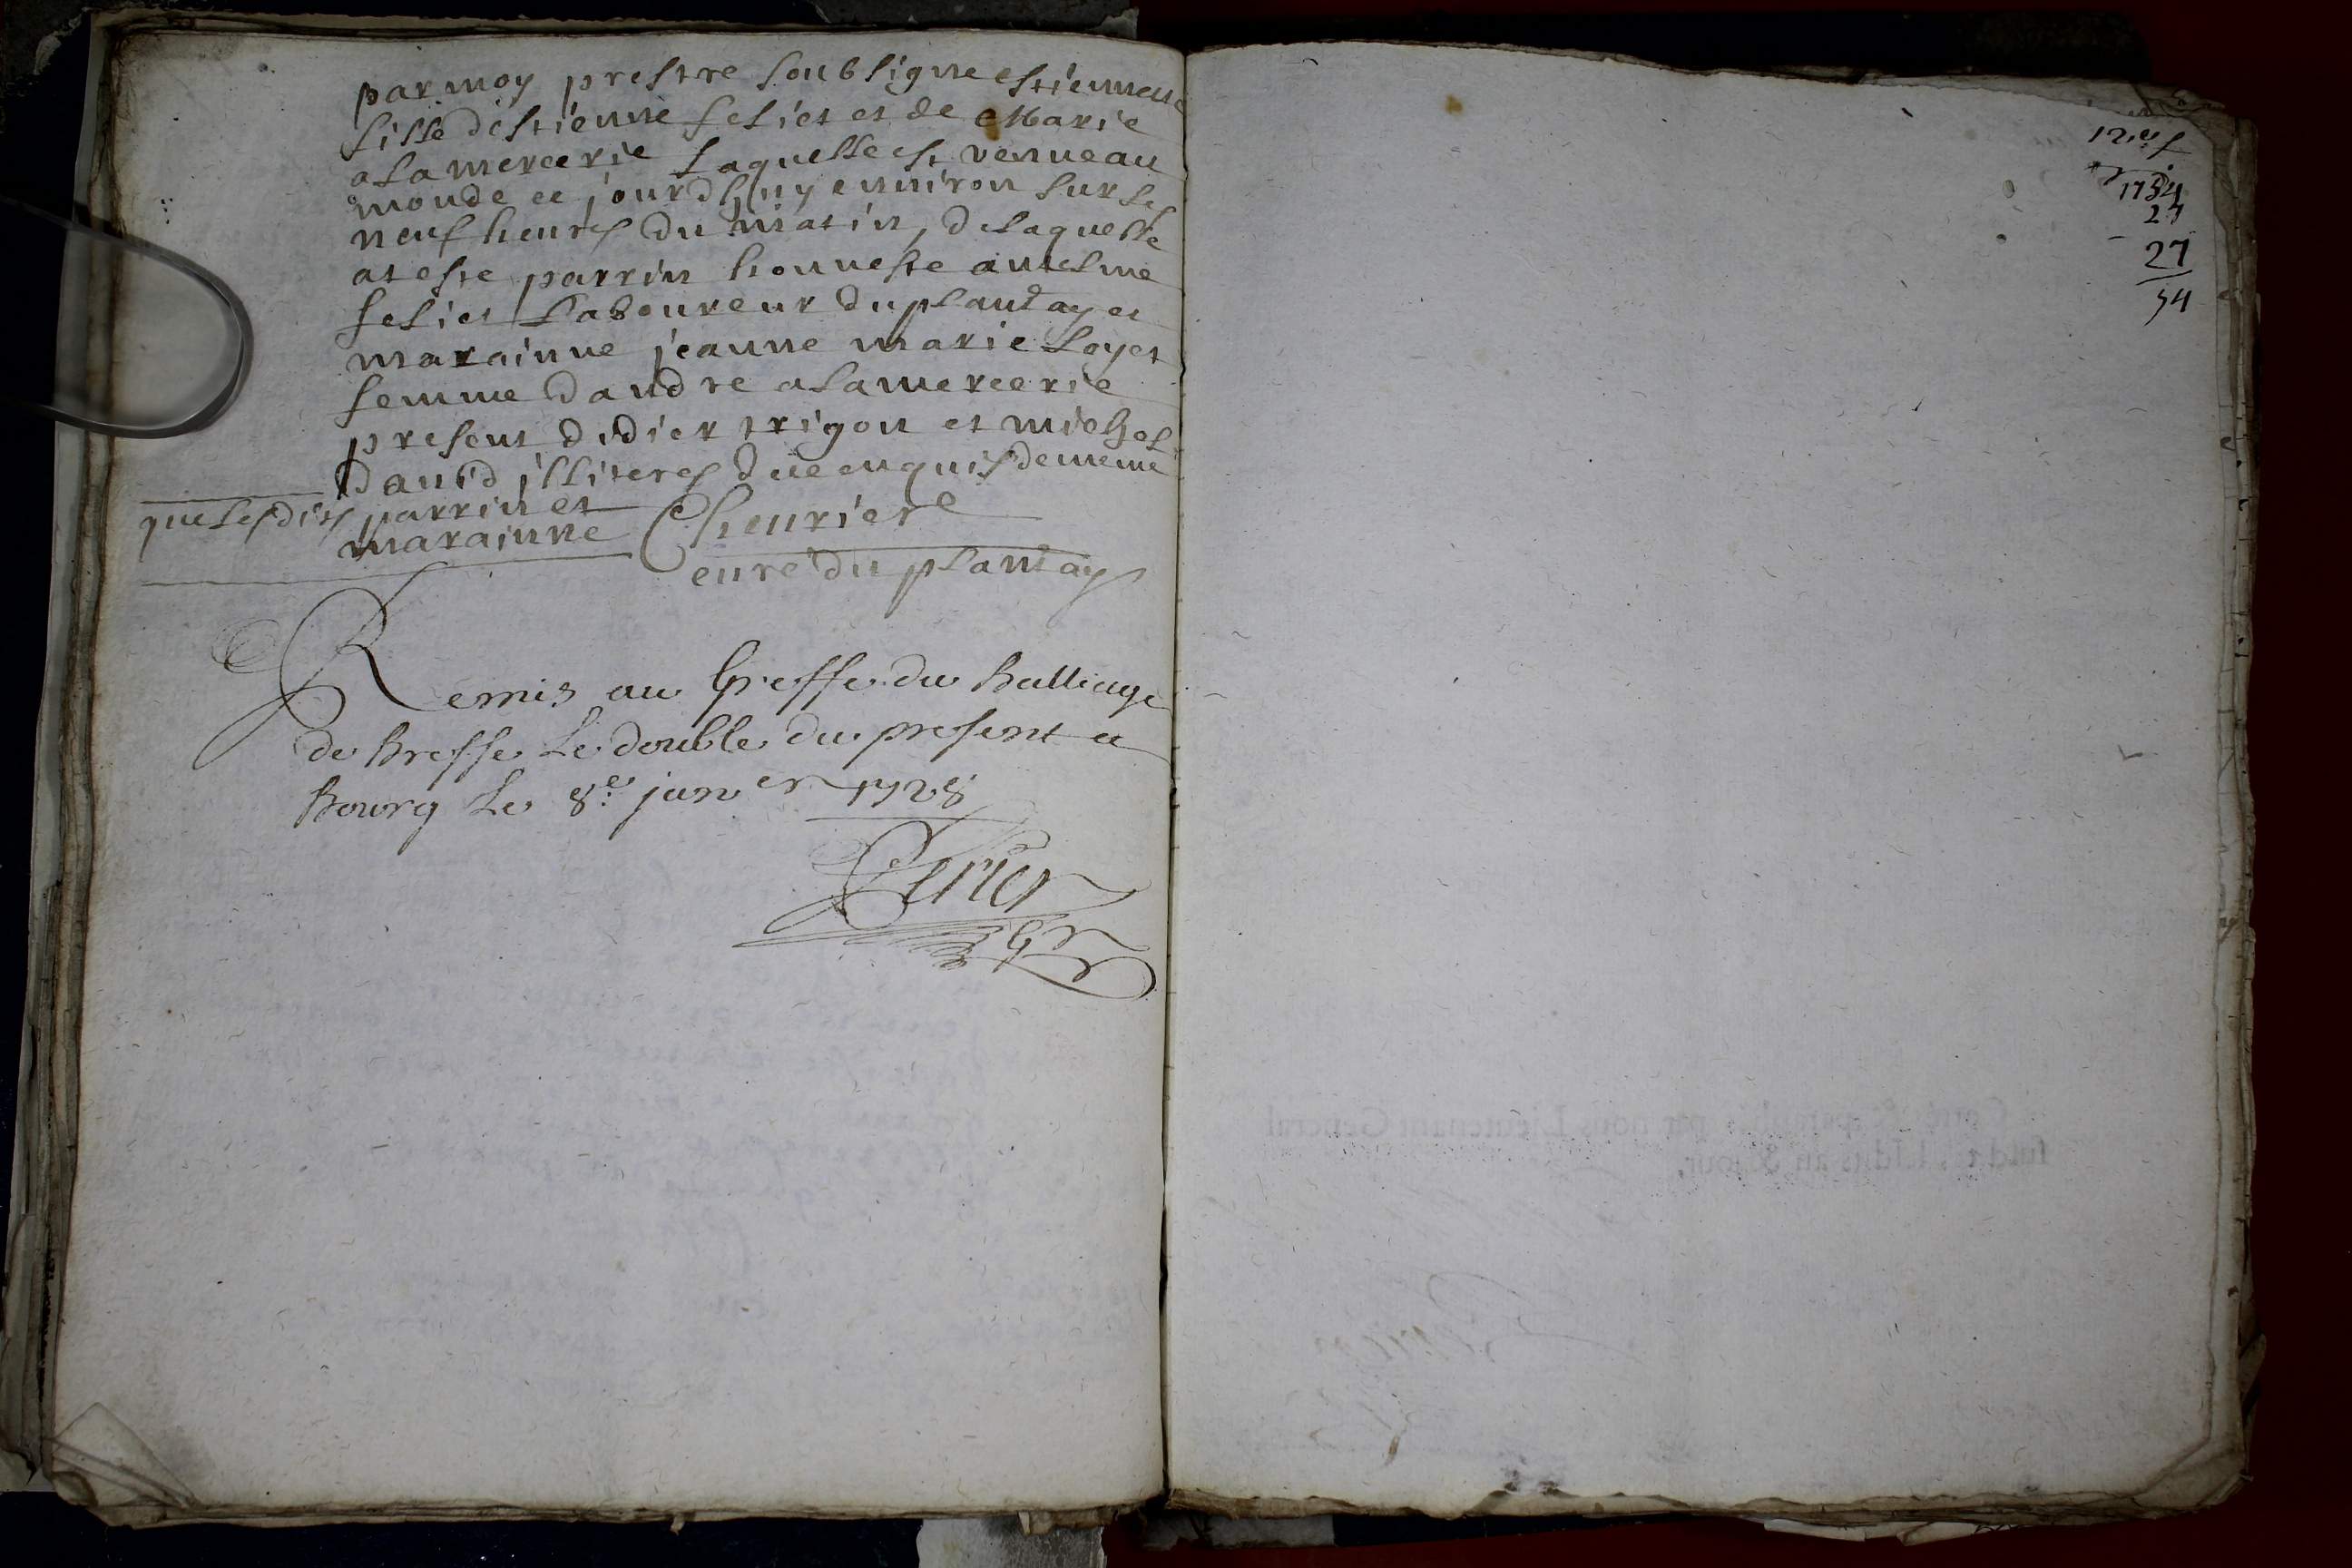 par moy prestre soubsigne estiennette
fille destienne feliet et de Marie
alamercerie laquelle est venue au
monde ce jourdhuy environ sur les
neuf heures du matin, de laquelle
at este parrin honneste antelme
feliet Laboureur du plantay et
marainne jeanne marie Loyet
femme dandre alamercerie
present didier trigon et michel
david illiteres de ce enquis de meme
que lesdits parrin et
marainne Cheurier
cure du plantay
Remis au Greffe du Balliage
de Bresse Le double du present a
Bourg Le 8e janer 1728
Perier
1734
27
27
54
par nous Lieutenant General
susdit lesdits an & jour.